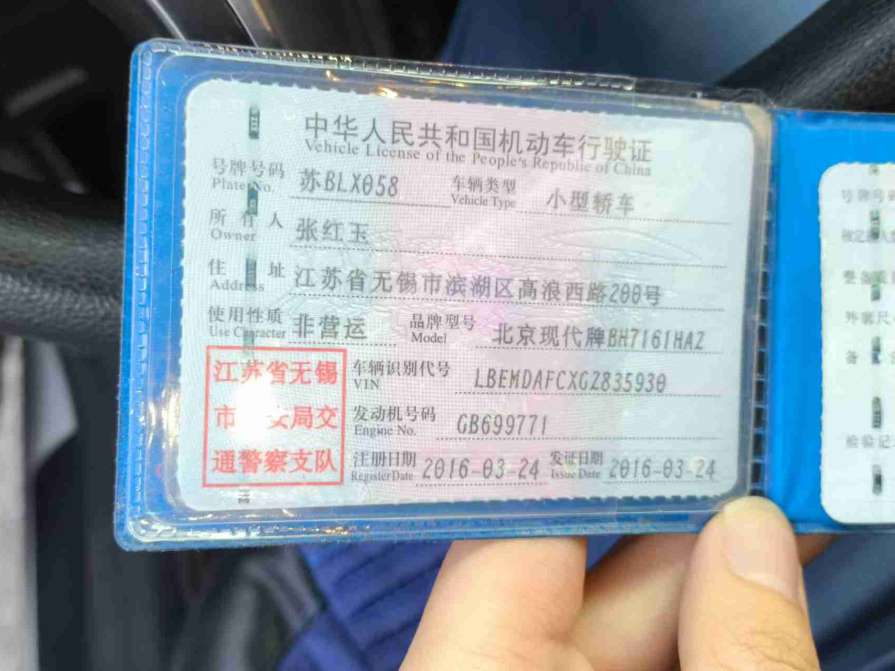 中华人民共和国机动车行驶证
Vehicle License of the People's Republic of China
号牌号码 苏BLX058 车辆类型 小型轿车
Plate No. Vehicle Type
所有人 张红玉
Owner
住址 江苏省无锡市滨湖区高浪西路200号
Address
使用性质 非营运 品牌型号 北京现代牌BH7161HAZ
Use Character Model
江苏省无锡
市 安局交
通警察支队
车辆识别代号 LBEMDAFCXGZ835930
VIN
发动机号码 GB699771
Engine No.
注册日期 2016-03-24 发证日期 2016-03-24
Register Date Issue Date
号牌号
整备
外廓尺
备
检验记